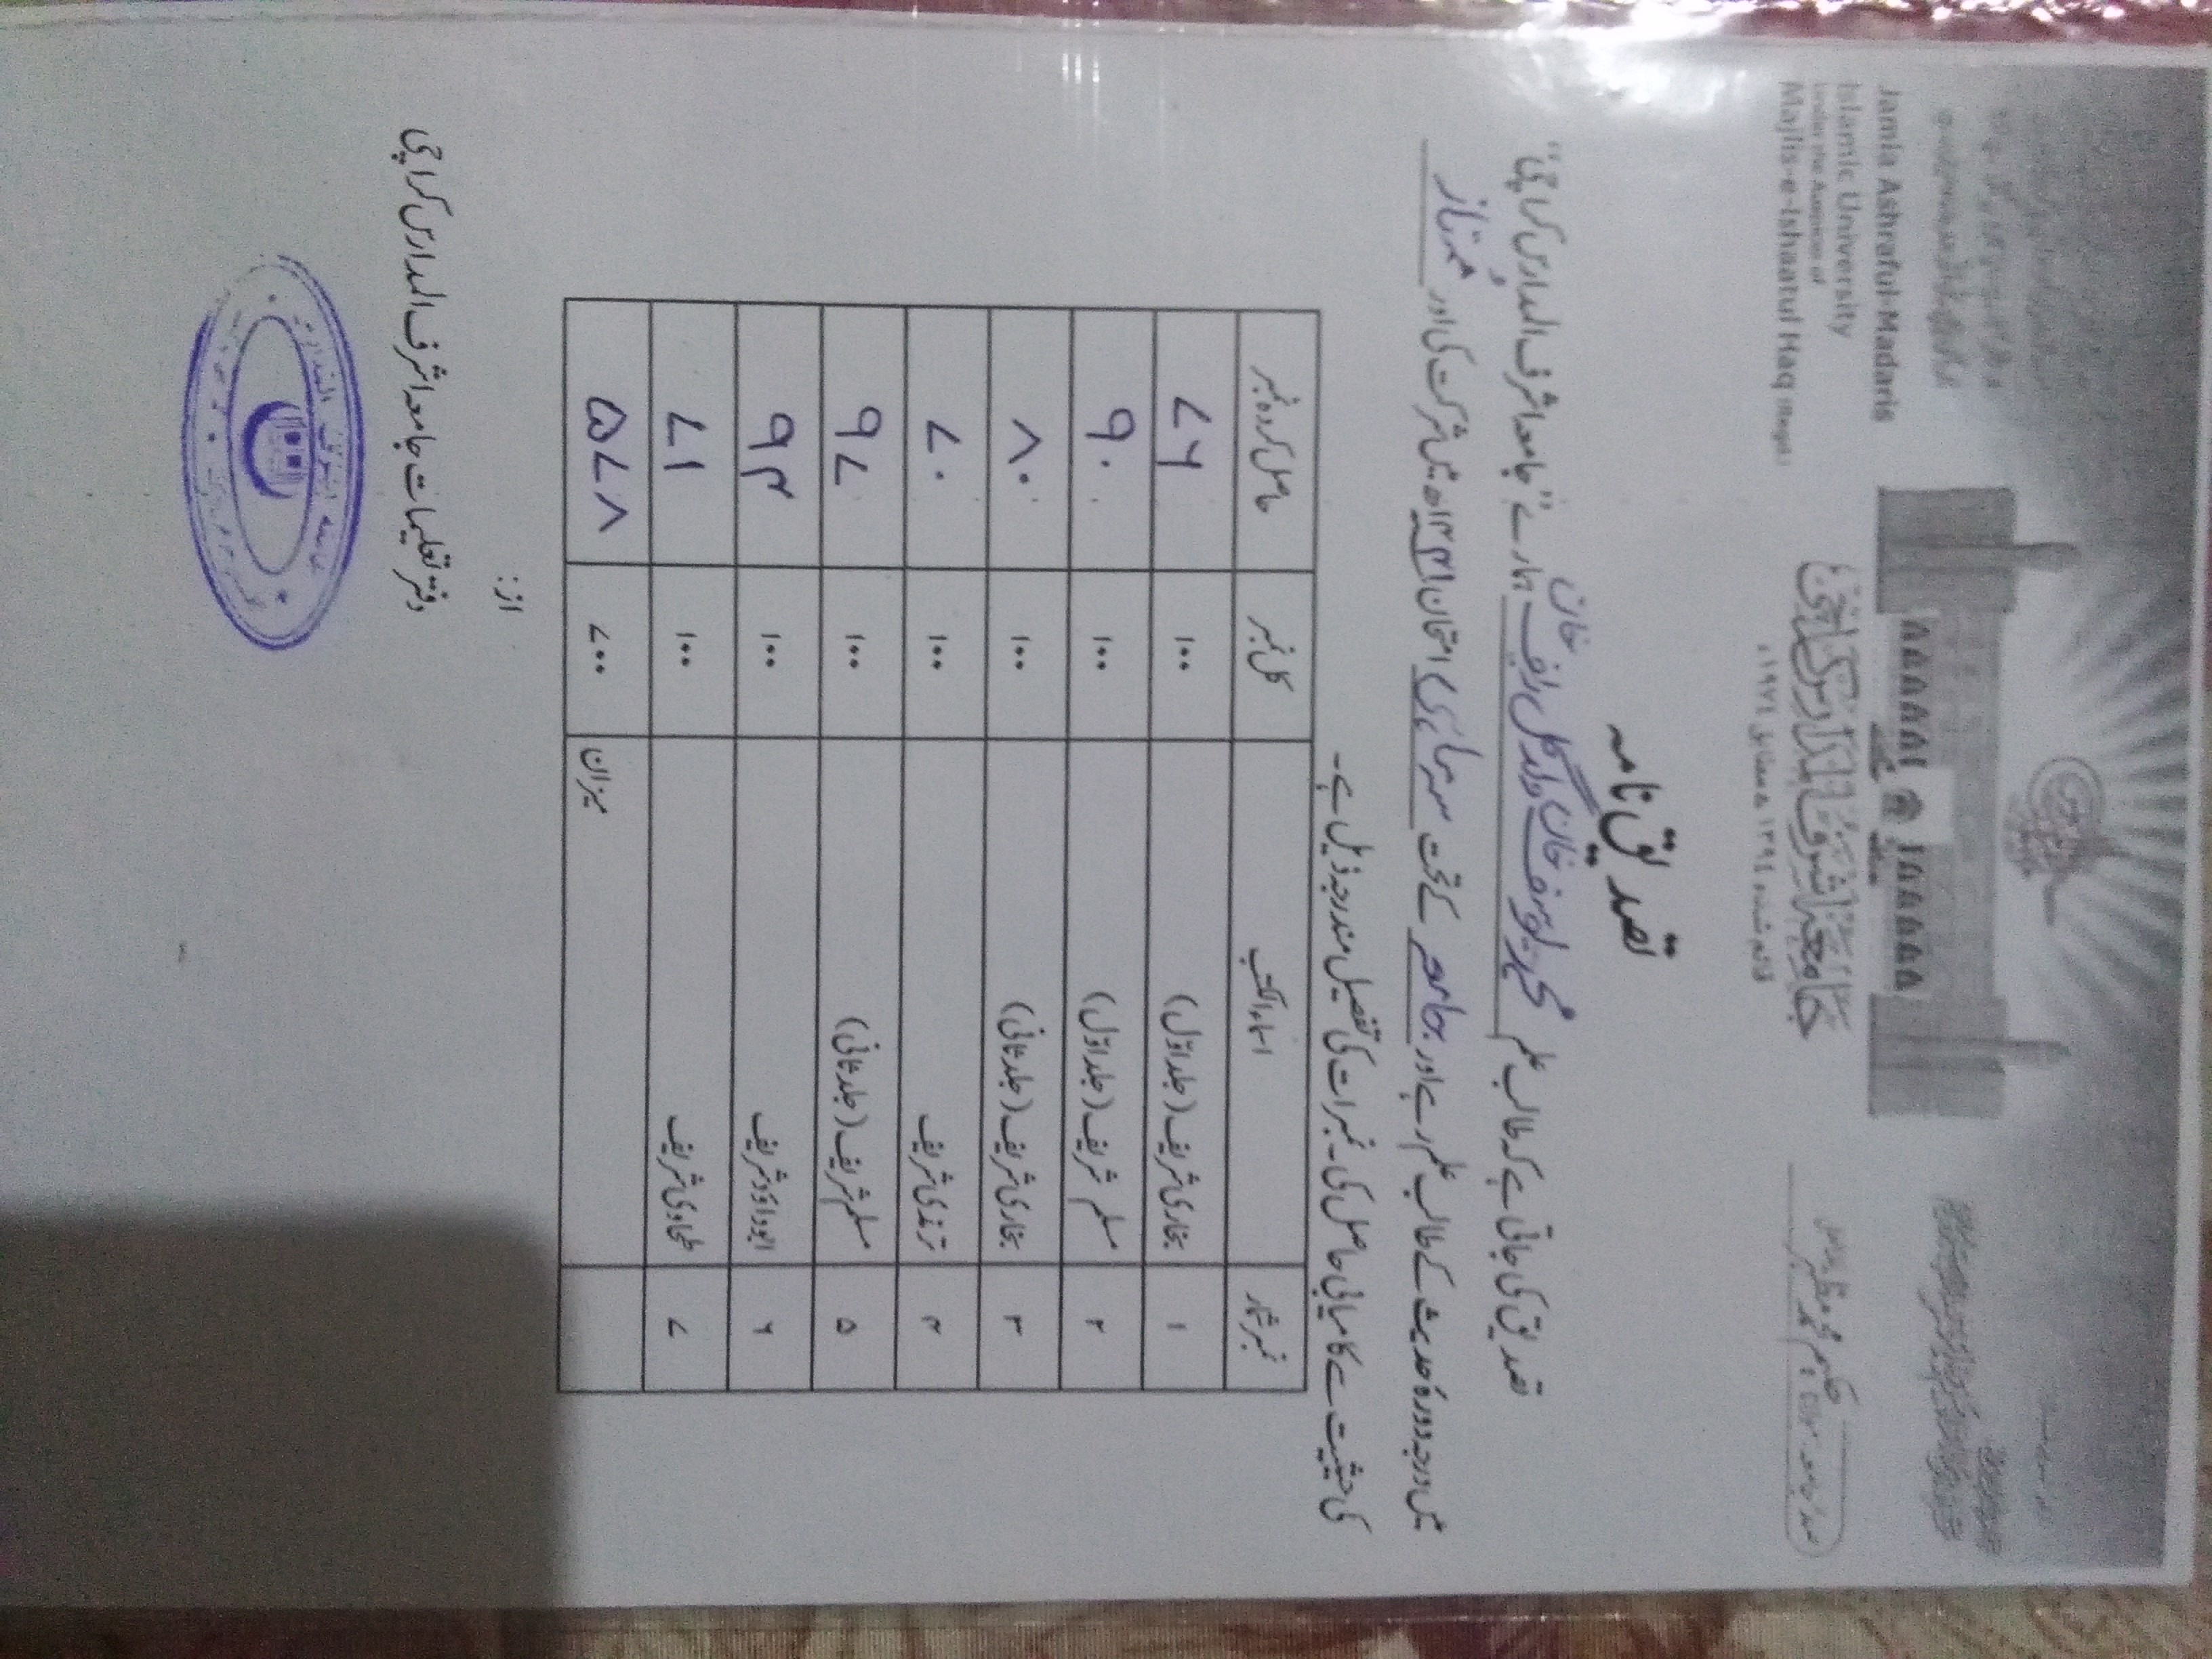 Jamia Ashraful-Madaris
Islamic University
Under the Auspices of
Majlis-e-Ishaatul Haq (Regd.)
جامعہ اشرف المدارس کراچی
قائم شدہ ۱۳۹۱ھ مطابق ۱۹۷۱ء
حکیم محمد مظہر
تصدیق نامہ
تصدیق کی جاتی ہے کہ طالب علم محمد یوسف خان ولد گل رائف خان ہمارے "جامعہ اشرف المدارس کراچی"
میں درجہ دورۂ حدیث کے طالب علم رہے اور جامعہ کے تحت سہ ماہی امتحان ۱۴۴۱ھ میں شرکت کی اور ممتاز
کی حیثیت سے کامیابی حاصل کی۔ نمبرات کی تفصیل مندرجہ ذیل ہے۔
نمبر شمار اسماء الکتب کل نمبر حاصل کردہ نمبر
۱ بخاری شریف (جلد اوّل) ۱۰۰ ۷۶
۲ مسلم شریف (جلد اوّل) ۱۰۰ ۹۰
۳ بخاری شریف (جلد ثانی) ۱۰۰ ۸۰
۴ ترمذی شریف ۱۰۰ ۷۰
۵ مسلم شریف (جلد ثانی) ۱۰۰ ۹۷
۶ ابوداؤد شریف ۱۰۰ ۹۴
۷ طحاوی شریف ۱۰۰ ۷۱
میزان ۷۰۰ ۵۷۸
از:
دفتر تعلیمات جامعہ اشرف المدارس کراچی